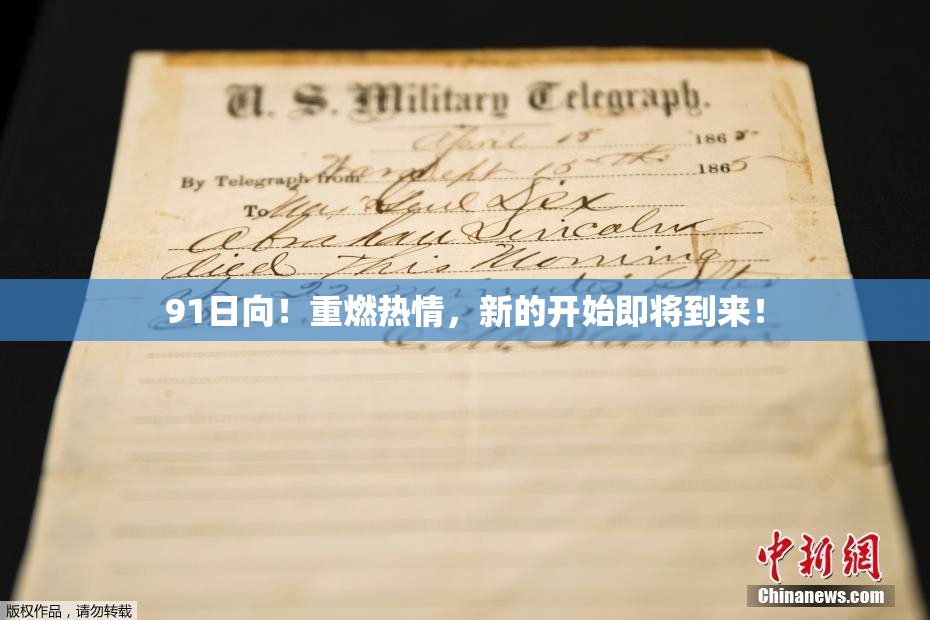 U. S. Military Telegraph.
April 15 1865
By Telegraph from War Dept 15th 1865
To Maj Genl Dix
Abraham Lincoln
died This Morning
at 22 minutes after
91日向！重燃热情，新的开始即将到来！
E. M. Stanton
中新網
Chinanews.com
版权作品，请勿转载